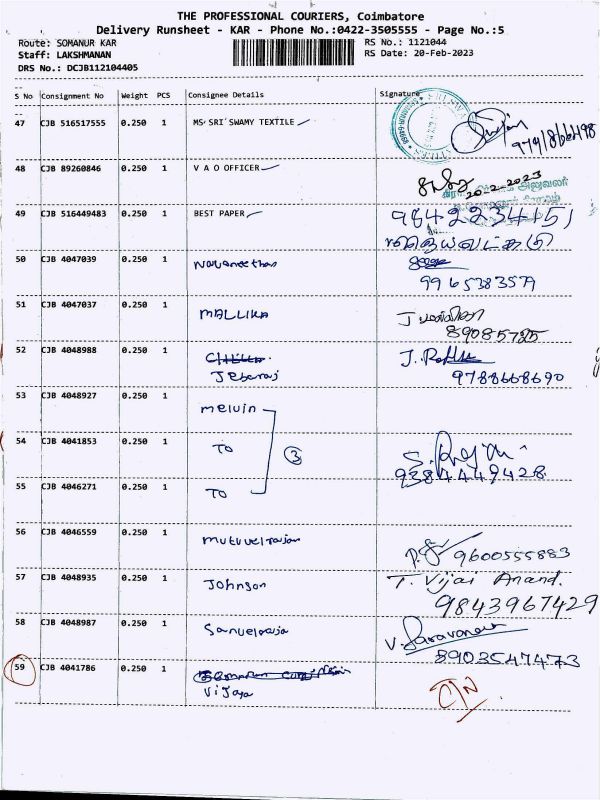 THE PROFESSIONAL COURIERS, Coimbatore
Delivery Runsheet - KAR - Phone No.:0422-3505555 - Page No.:5
Route: SOMANUR KAR
RS No.: 1121044
Staff: LAKSHMANAN
RS Date: 20-Feb-2023
DRS No.: DCJB112104405
S No Consignment No Weight PCS Consignee Details Signature
47 CJB 516517555 0.250 1 MS SRI SWAMY TEXTILE
48 CJB 89260846 0.250 1 V A O OFFICER
20-2-2023
49 CJB 516449483 0.250 1 BEST PAPER 9842234151
50 CJB 4047039 0.250 1 Navaneethan
9965383579
51 CJB 4047037 0.250 1 MALLIKA
89085725
52 CJB 4048988 0.250 1 Jebaraj
9788668690
53 CJB 4048927 0.250 1 melvin
54 CJB 4041853 0.250 1 TO 3
9384449428
55 CJB 4046271 0.250 1 TO
56 CJB 4046559 0.250 1 mutuvelrajan 9600555883
57 CJB 4048935 0.250 1 Johnson T. Vijai Anand.
9843967429
58 CJB 4048987 0.250 1 Samuelraja V. Saravanan
8903547473
59 CJB 4041786 0.250 1
Vijaya C/N